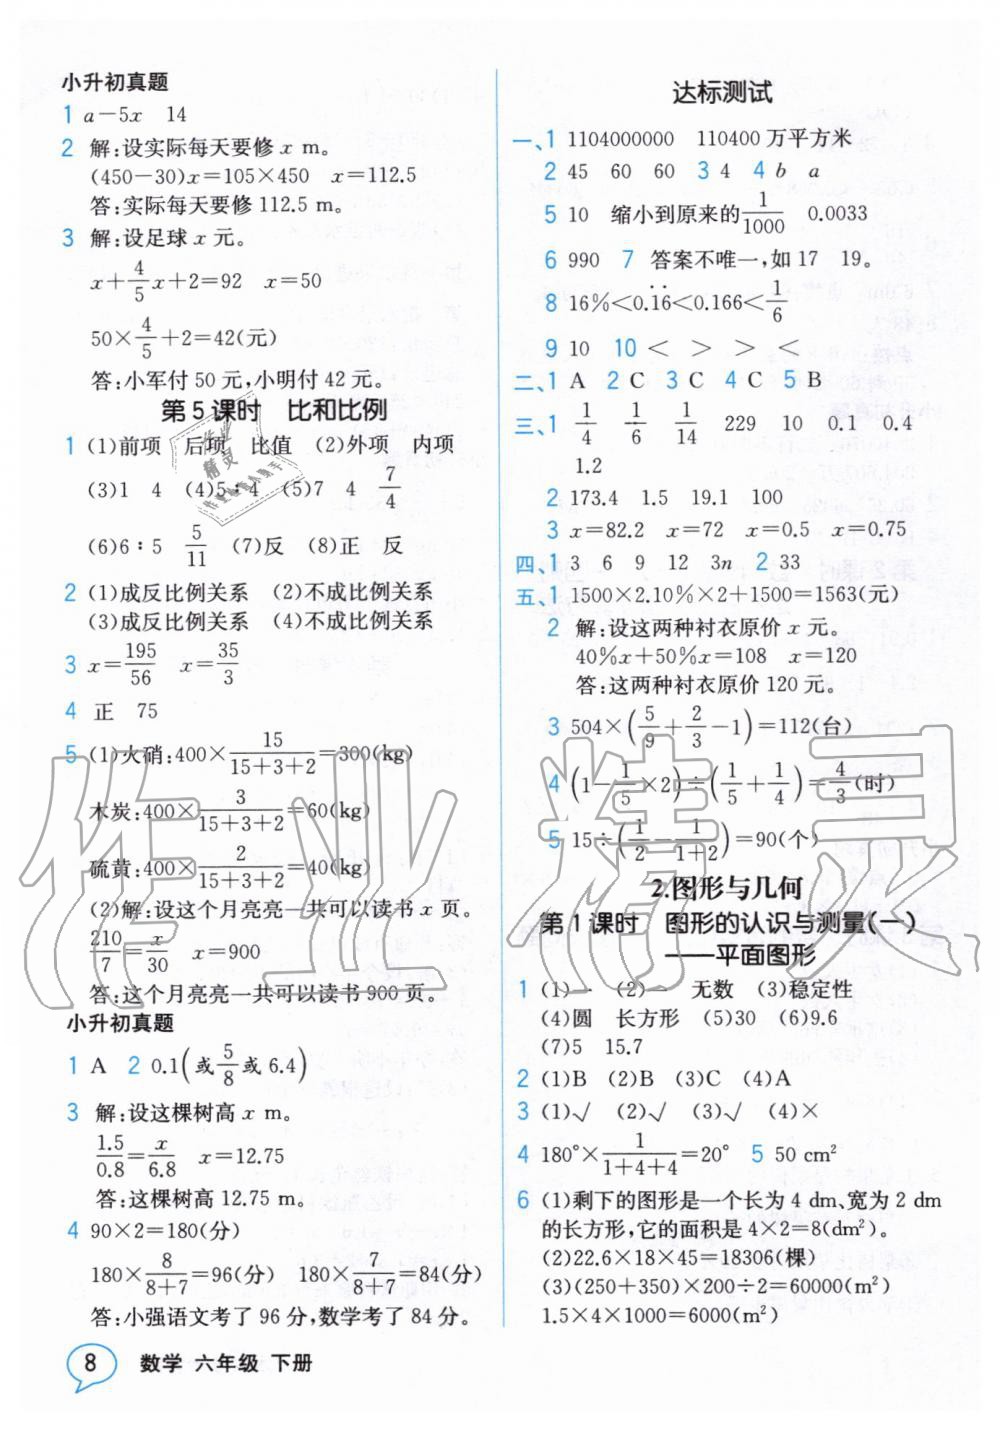 小升初真题
1 a－5x 14
2 解:设实际每天要修 x m。
(450－30)x＝105×450 x＝112.5
答:实际每天要修 112.5 m。
3 解:设足球 x 元。
x＋4/5x＋2＝92 x＝50
50×4/5＋2＝42(元)
答:小军付 50 元,小明付 42 元。
第 5 课时 比和比例
1 (1)前项 后项 比值 (2)外项 内项
(3)1 4 (4)5∶4 (5)7 4 7/4
(6)6∶5 5/11 (7)反 (8)正 反
2 (1)成反比例关系 (2)不成比例关系
(3)成反比例关系 (4)不成比例关系
3 x＝195/56 x＝35/3
4 正 75
5 (1)火硝:400×15/(15＋3＋2)＝300(kg)
木炭:400×3/(15＋3＋2)＝60(kg)
硫黄:400×2/(15＋3＋2)＝40(kg)
(2)解:设这个月亮亮一共可以读书 x 页。
210/7＝x/30 x＝900
答:这个月亮亮一共可以读书 900 页。
小升初真题
1 A 2 0.1(或5/8或 6.4)
3 解:设这棵树高 x m。
1.5/0.8＝x/6.8 x＝12.75
答:这棵树高 12.75 m。
4 90×2＝180(分)
180×8/(8＋7)＝96(分) 180×7/(8＋7)＝84(分)
答:小强语文考了 96 分,数学考了 84 分。
8 数学 六年级 下册
达标测试
一、1 1104000000 110400 万平方米
2 45 60 60 3 4 4 b a
5 10 缩小到原来的1/1000 0.0033
6 990 7 答案不唯一,如 17 19。
8 16%＜0.1̇6̇＜0.166＜1/6
9 10 10 ＜ ＞ ＞ ＜
二、1 A 2 C 3 C 4 C 5 B
三、1 1/4 1/6 1/14 229 10 0.1 0.4
1.2
2 173.4 1.5 19.1 100
3 x＝82.2 x＝72 x＝0.5 x＝0.75
四、1 3 6 9 12 3n 2 33
五、1 1500×2.10%×2＋1500＝1563(元)
2 解:设这两种衬衣原价 x 元。
40%x＋50%x＝108 x＝120
答:这两种衬衣原价 120 元。
3 504×(5/9＋2/3－1)＝112(台)
4 (1－1/5×2)÷(1/5＋1/4)＝4/3(时)
5 15÷(1/2－1/(1＋2))＝90(个)
2.图形与几何
第 1 课时 图形的认识与测量(一)
——平面图形
1 (1)一 (2)一 无数 (3)稳定性
(4)圆 长方形 (5)30 (6)9.6
(7)5 15.7
2 (1)B (2)B (3)C (4)A
3 (1)√ (2)√ (3)√ (4)×
4 180°×1/(1＋4＋4)＝20° 5 50 cm²
6 (1)剩下的图形是一个长为 4 dm、宽为 2 dm
的长方形,它的面积是 4×2＝8(dm²)。
(2)22.6×18×45＝18306(棵)
(3)(250＋350)×200÷2＝60000(m²)
1.5×4×1000＝6000(m²)
作业精灵